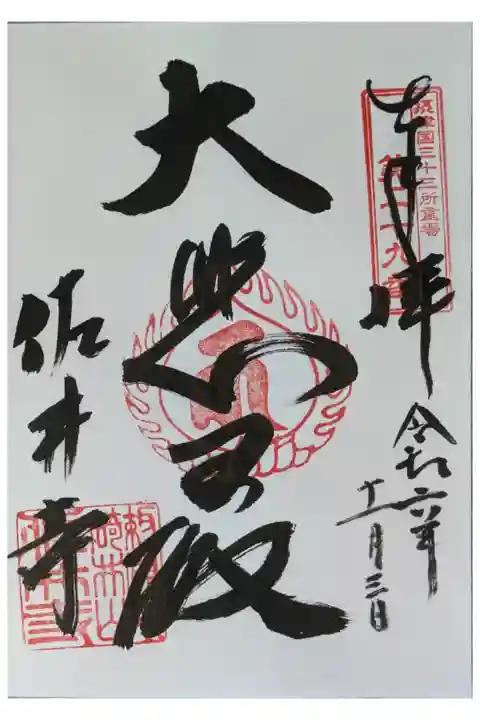 奉拝
摂津国三十三所霊場
第二十九番
令和六年
十一月三日
大悲殿
佐井寺